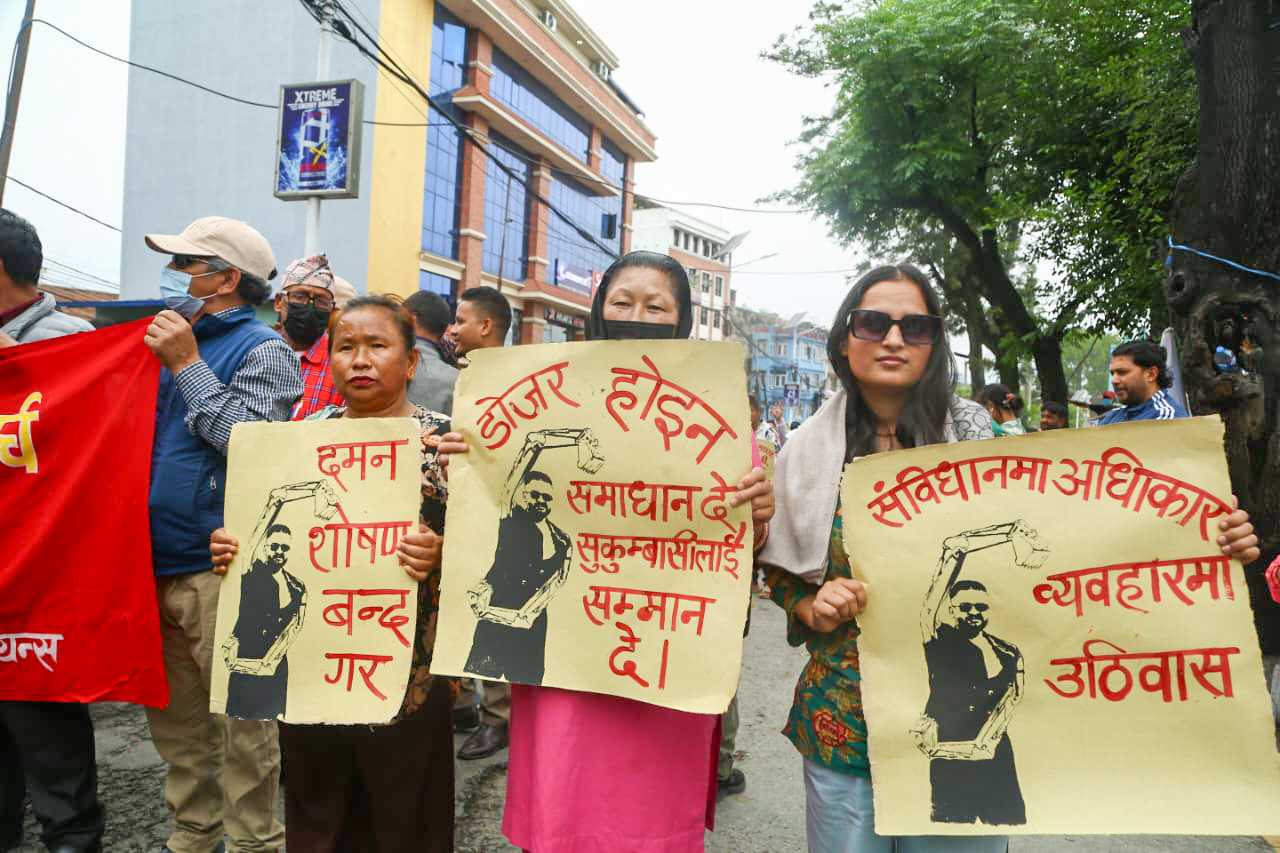 XTREME
ENERGY DRINK
र्च
यन्स
दमन
शोषण
बन्द
गर
डोजर होइन
समाधान दे
सुकुम्बासीलाई
सम्मान
दे।
संविधानमा अधिकार
व्यवहारमा
उठिवास